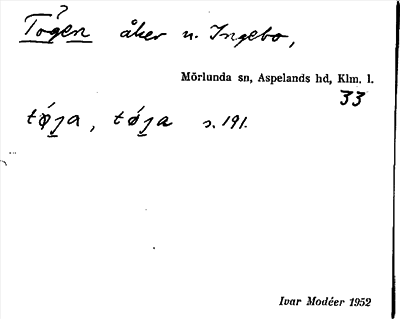 Togen åker n. Ingebo,
?
Mörlunda sn, Aspelands hd, Klm. l.
33
s. 191.
Ivar Modéer 1952